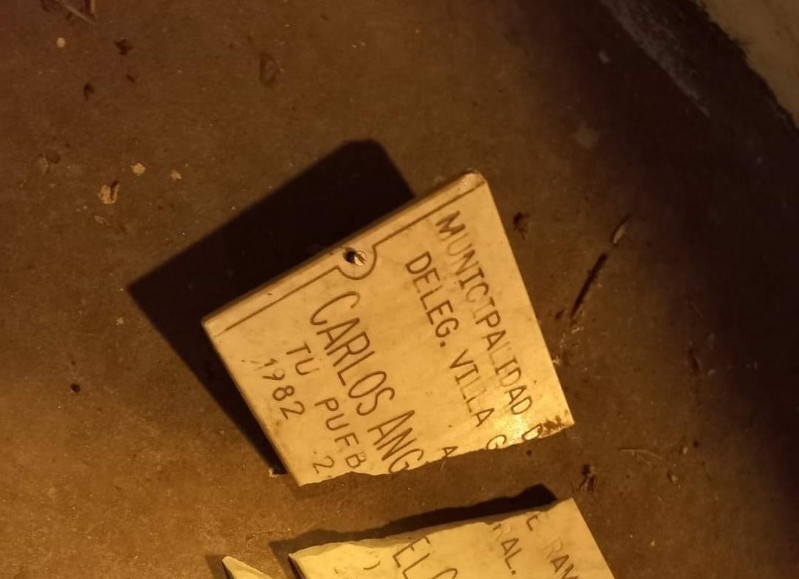 MUNICIPALIDAD D
DELEG. VILLA G
A
CARLOS ANG
TU PUEB
1982 2
E RAW
RAL.
EL